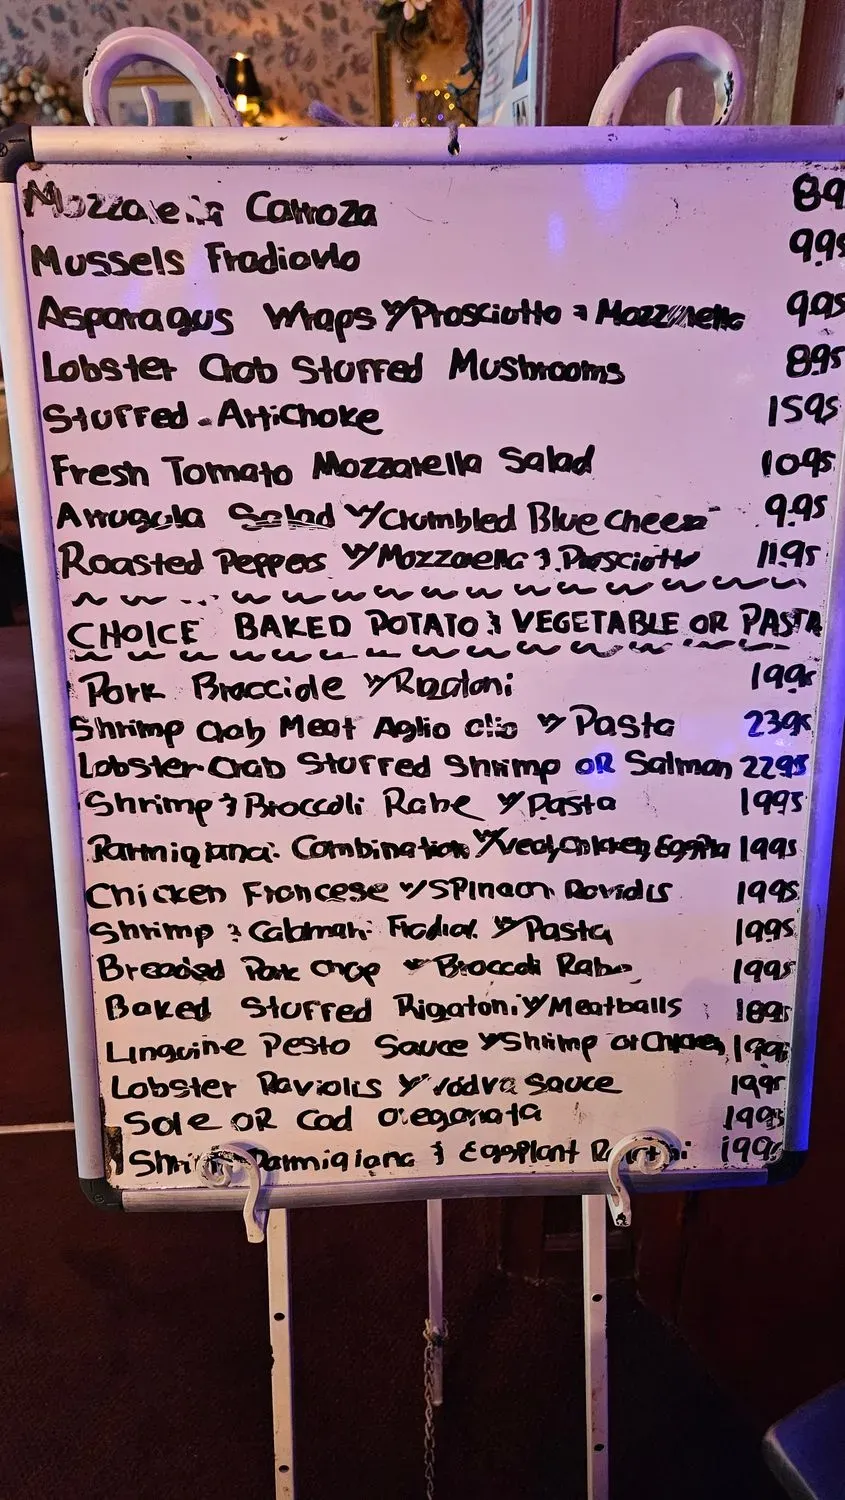 Mozzarella Carroza 89
Mussels Fradiavlo 995
Asparagus Wraps w/Prosciutto & Mozzarella 995
Lobster Crab Stuffed Mushrooms 895
Stuffed Artichoke 1595
Fresh Tomato Mozzarella Salad 1095
Arrugola Salad w/Crumbled Blue Cheese 995
Roasted Peppers w/Mozzarella & Prosciutto 11.95
CHOICE BAKED POTATO & VEGETABLE OR PASTA
Pork Bracciole w/Rigatoni 1995
Shrimp Crab Meat Aglio olio w/Pasta 2395
Lobster Crab Stuffed Shrimp OR Salmon 2295
Shrimp & Broccoli Rabe w/Pasta 1995
Parmigiana: Combination w/Veal, Chicken, Eggpla 1995
Chicken Francese w/SPinach Raviolis 1995
Shrimp & Calamari Fradial. w/Pasta 1995
Breaded Pork Chop w/Broccoli Rabe 1995
Baked Stuffed Rigatoni w/Meatballs 1895
Linguine Pesto Sauce w/Shrimp or Chicken 1995
Lobster Raviolis w/vodva Sauce 1995
Sole OR Cod Oreganata 1995
Parmigiana & Eggplant 199